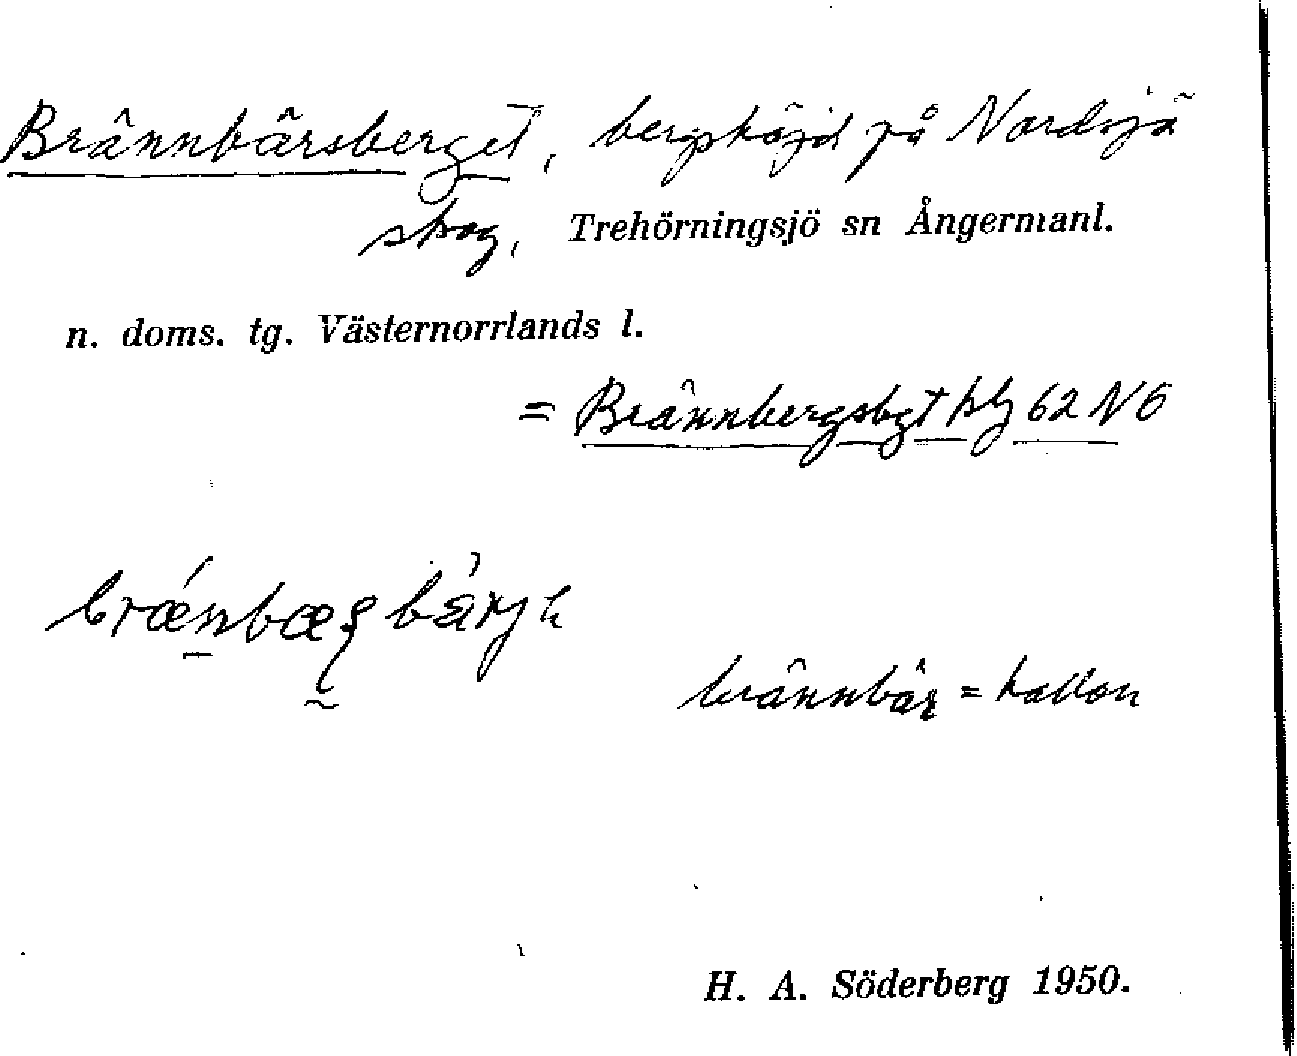 Brännbärsberget, bergshöjd på Nordsjö
skog, Trehörningsjö sn Ångermanl.
n. doms. tg. Västernorrlands l.
= Brännbergsbgt hbl 62 N 6
brännbär = hallon
H. A. Söderberg 1950.